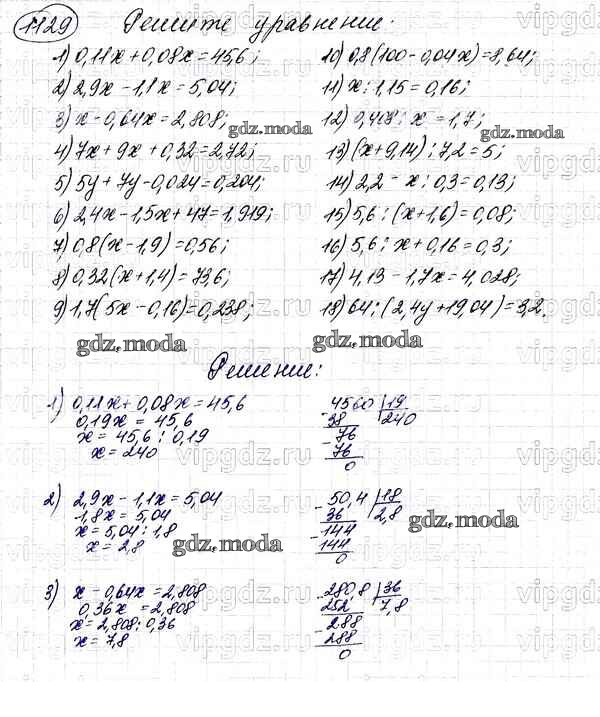 1129 Решите уравнение:
1) 0,11x + 0,08x = 45,6;
2) 2,9x - 1,1x = 5,04;
3) x - 0,64x = 2,808;
4) 7x + 9x + 0,32 = 2,72;
5) 5y + 7y - 0,024 = 0,204;
6) 2,4x - 1,5x + 47 = 1,919;
7) 0,8(x - 1,9) = 0,56;
8) 0,32(x + 1,4) = 73,6;
9) 1,7(5x - 0,16) = 0,238;
10) 0,8(100 - 0,04x) = 8,64;
11) x : 1,15 = 0,16;
12) 0,408 : x = 1,7;
13) (x + 9,14) : 7,2 = 5;
14) 2,2 - x : 0,3 = 0,13;
15) 5,6 : (x + 1,6) = 0,08;
16) 5,6 : x + 0,16 = 0,3;
17) 4,13 - 1,7x = 4,028;
18) 64 : (2,4y + 19,04) = 3,2.
gdz.moda
gdz.moda
gdz.moda
gdz.moda
Решение:
1) 0,11x + 0,08x = 45,6
0,19x = 45,6
x = 45,6 : 0,19
x = 240
4560 | 19
38 240
- 76
76
0
2) 2,9x - 1,1x = 5,04
1,8x = 5,04
x = 5,04 : 1,8
x = 2,8
- 50,4 | 18
36 2,8
- 144
144
0
gdz.moda
gdz.moda
3) x - 0,64x = 2,808
0,36x = 2,808
x = 2,808 : 0,36
x = 7,8
280,8 | 36
252 7,8
- 288
288
0